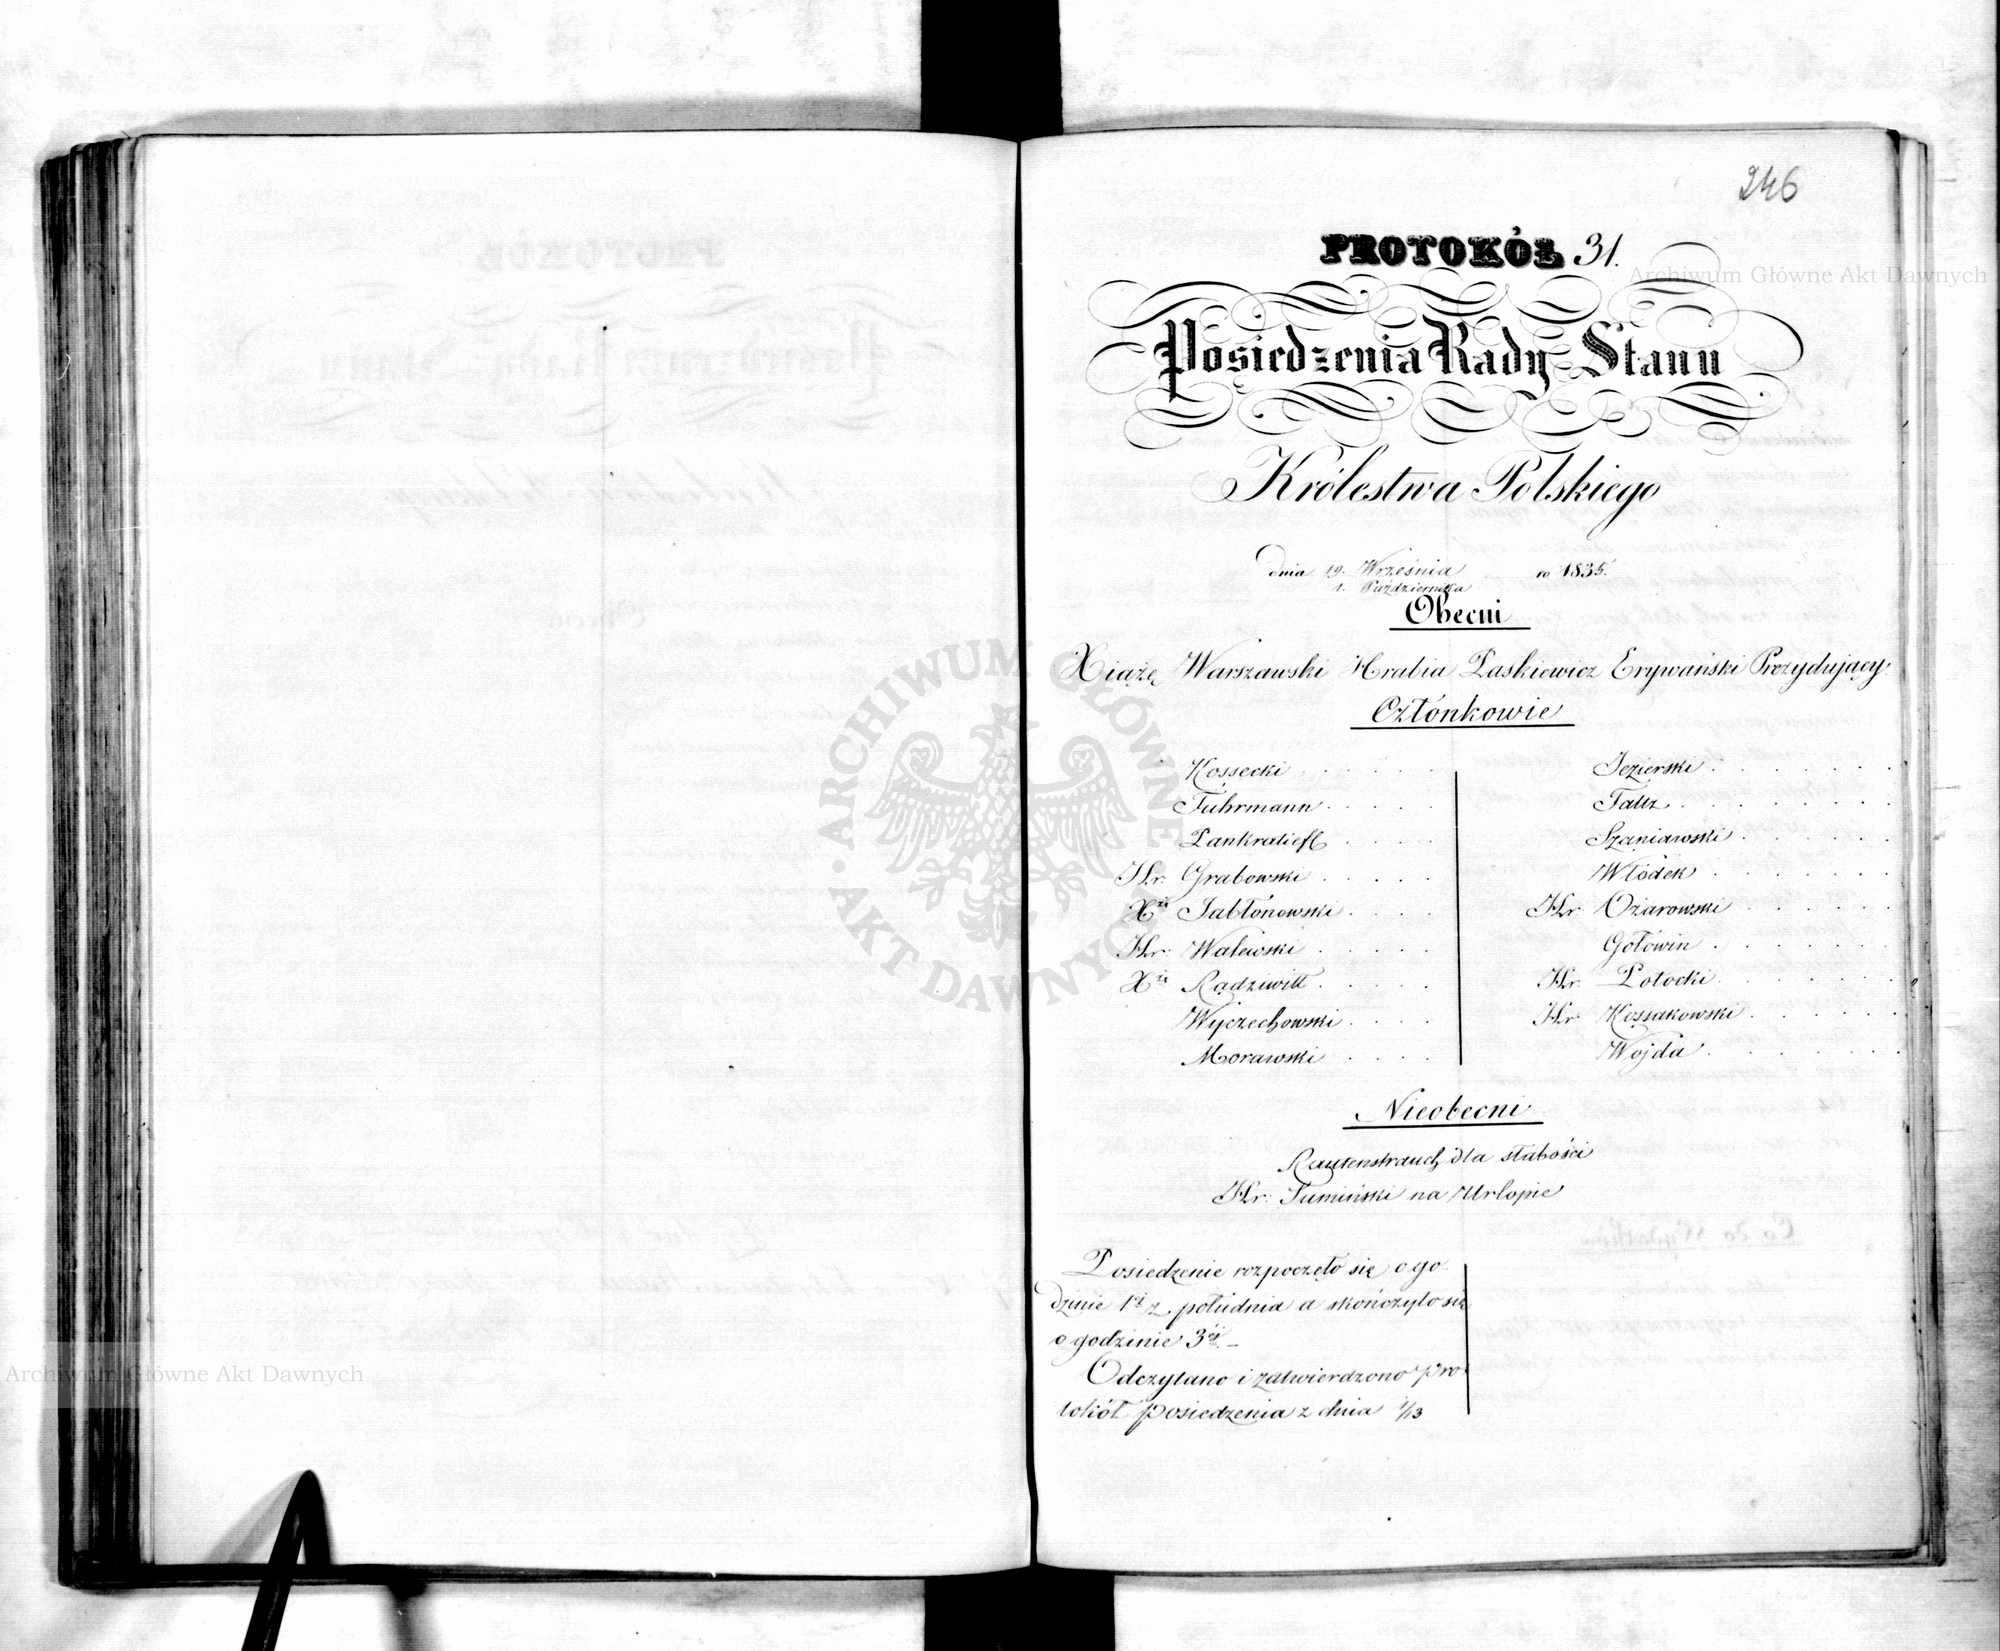 246
PROTOKÓŁ 31.
Posiedzenia Rady Stanu
Królestwa Polskiego
dnia 19. Września ro 1835.
1. Października
Obecni
Xiążę Warszawski Hrabia Paskiewicz Erywański Prezydujący.
Członkowie
Kossecki
Fuhrmann
Pankratieff
Hr. Grabowski
Xżę Jabłonowski
Hr. Walewski
Xżę Radziwiłł
Wyczechowski
Morawski
Jezierski
Faltz
Szaniawski
Włodek
Hr. Ożarowski
Gołowin
Hr. Potocki
Hr. Kossakowski
Woyda
Nieobecni
Rautenstrauch dla słabości
Hr: Tumiński na Urlopie
Posiedzenie rozpoczęło się o go-
dzinie 1éj z południa a skończyło się
o godzinie 3éj. –
Odczytano i zatwierdzono pro-
tokół posiedzenia z dnia 1/13
Archiwum Główne Akt Dawnych
Archiwum Główne Akt Dawnych
ARCHIWUM GŁÓWNE AKT DAWNYCH